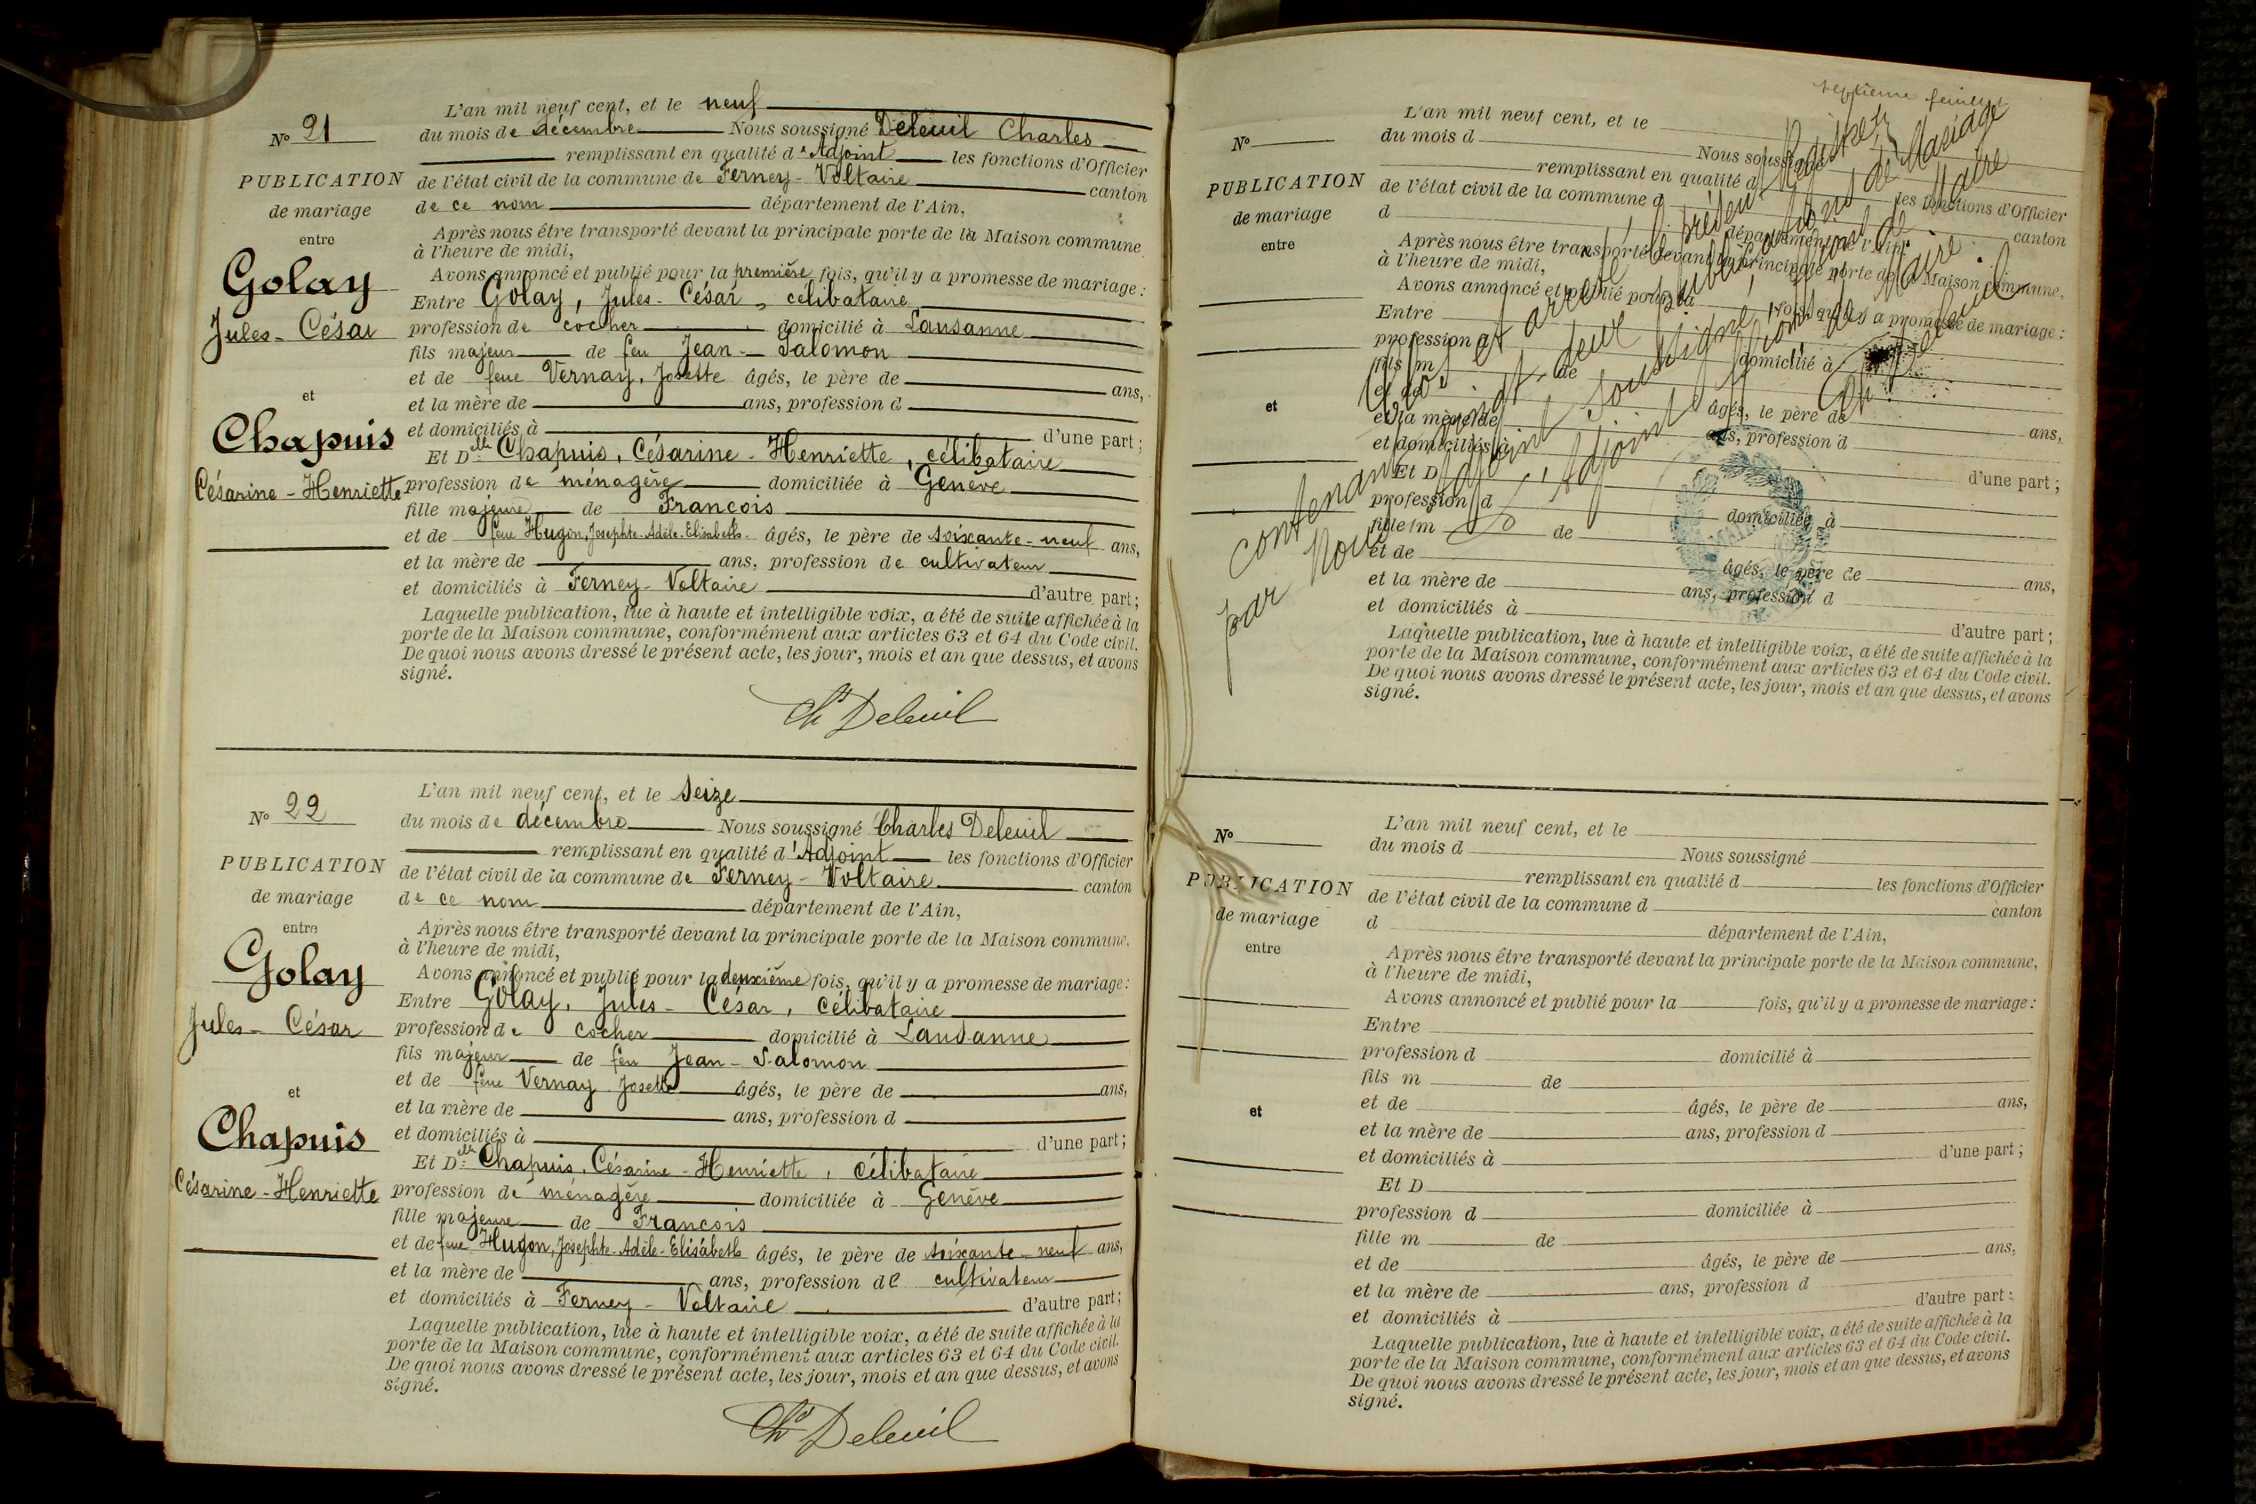 L'an mil neuf cent, et le neuf
N° 21
du mois de décembre Nous soussigné Deleuil Charles
remplissant en qualité d'Adjoint les fonctions d'Officier
PUBLICATION
de l'état civil de la commune de Ferney-Voltaire canton
de mariage
de ce nom département de l'Ain,
entre
Après nous être transporté devant la principale porte de la Maison commune
à l'heure de midi,
Avons annoncé et publié pour la première fois, qu'il y a promesse de mariage :
Golay
Entre Golay, Jules-César, célibataire
Jules-César
profession de cocher domicilié à Lausanne
fils majeur de feu Jean-Salomon
et de feue Vernay, Josette âgés, le père de ans,
et
et la mère de ans, profession d
et domiciliés à d'une part ;
Chapuis
Et Delle Chapuis, Césarine-Henriette, célibataire
Césarine-Henriette
profession de ménagère domiciliée à Genève
fille majeure de François
et de feue Hugon, Josephte-Adèle-Elisabeth âgés, le père de soixante-neuf ans,
et la mère de ans, profession de cultivateur
et domiciliés à Ferney-Voltaire d'autre part ;
Laquelle publication, lue à haute et intelligible voix, a été de suite affichée à la
porte de la Maison commune, conformément aux articles 63 et 64 du Code civil.
De quoi nous avons dressé le présent acte, les jour, mois et an que dessus, et avons
signé.
Chs Deleuil
L'an mil neuf cent, et le seize
N° 22
du mois de décembre Nous soussigné Charles Deleuil
remplissant en qualité d'Adjoint les fonctions d'Officier
PUBLICATION
de l'état civil de la commune de Ferney-Voltaire canton
de mariage
de ce nom département de l'Ain,
entre
Après nous être transporté devant la principale porte de la Maison commune,
à l'heure de midi,
Avons annoncé et publié pour la deuxième fois, qu'il y a promesse de mariage :
Golay
Entre Golay, Jules-César, célibataire
Jules-César
profession de cocher domicilié à Lausanne
fils majeur de feu Jean-Salomon
et de feue Vernay Josette âgés, le père de ans,
et
et la mère de ans, profession d
et domiciliés à d'une part ;
Chapuis
Et Delle Chapuis, Césarine-Henriette, célibataire
Césarine-Henriette
profession de ménagère domiciliée à Genève
fille majeure de François
et de feue Hugon, Josephte-Adèle-Elisabeth âgés, le père de soixante-neuf ans,
et la mère de ans, profession de cultivateur
et domiciliés à Ferney-Voltaire d'autre part ;
Laquelle publication, lue à haute et intelligible voix, a été de suite affichée à la
porte de la Maison commune, conformément aux articles 63 et 64 du Code civil.
De quoi nous avons dressé le présent acte, les jour, mois et an que dessus, et avons
signé.
Chs Deleuil
septième feuillet
Clos et arrêté le présent Registre
contenant vingt-deux publications de Mariage
par Nous Adjoint soussigné, faisant
L'Adjoint ffions de Maire.
Ch. Deleuil
MAIRIE
L'an mil neuf cent, et le
N°
du mois d Nous soussigné
remplissant en qualité d les fonctions d'Officier
PUBLICATION
de l'état civil de la commune d canton
de mariage
d département de l'Ain,
entre
Après nous être transporté devant la principale porte de la Maison commune,
à l'heure de midi,
Avons annoncé et publié pour la fois, qu'il y a promesse de mariage :
Entre
profession d domicilié à
fils m de
et de âgés, le père de ans,
et
et la mère de ans, profession d
et domiciliés à d'une part ;
Et D
profession d domiciliée à
fille m de
et de âgés, le père de ans,
et la mère de ans, profession d
et domiciliés à d'autre part ;
Laquelle publication, lue à haute et intelligible voix, a été de suite affichée à la
porte de la Maison commune, conformément aux articles 63 et 64 du Code civil.
De quoi nous avons dressé le présent acte, les jour, mois et an que dessus, et avons
signé.
L'an mil neuf cent, et le
N°
du mois d Nous soussigné
remplissant en qualité d les fonctions d'Officier
PUBLICATION
de l'état civil de la commune d canton
de mariage
d département de l'Ain,
entre
Après nous être transporté devant la principale porte de la Maison commune,
à l'heure de midi,
Avons annoncé et publié pour la fois, qu'il y a promesse de mariage :
Entre
profession d domicilié à
fils m de
et de âgés, le père de ans,
et
et la mère de ans, profession d
et domiciliés à d'une part ;
Et D
profession d domiciliée à
fille m de
et de âgés, le père de ans,
et la mère de ans, profession d
et domiciliés à d'autre part ;
Laquelle publication, lue à haute et intelligible voix, a été de suite affichée à la
porte de la Maison commune, conformément aux articles 63 et 64 du Code civil.
De quoi nous avons dressé le présent acte, les jour, mois et an que dessus, et avons
signé.